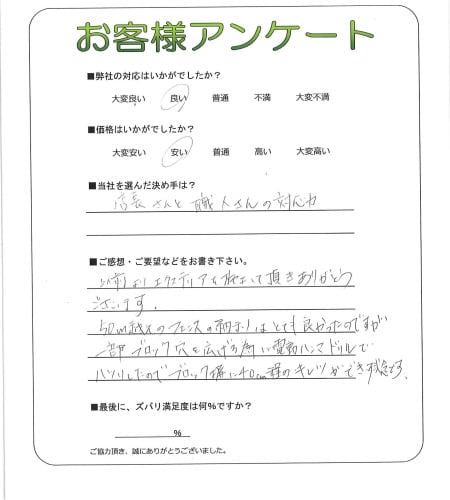 お客様アンケート
■弊社の対応はいかがでしたか？
大変良い 良い 普通 不満 大変不満
■価格はいかがでしたか？
大変安い 安い 普通 高い 大変高い
■当社を選んだ決め手は？
店長さんと職人さんの対応力
■ご感想・ご要望などをお書き下さい。
以前よりエクステリアを施工して頂きありがとう
ございます。
50m越えのフェンスの柄ホリはとても良かったのですが
一部ブロック穴を広げる為に電動ハンマドリルで
ハツリしたのでブロック塀に40cm程のキレツができ
■最後に、ズバリ満足度は何%ですか？
%
ご協力頂き、誠にありがとうございました。